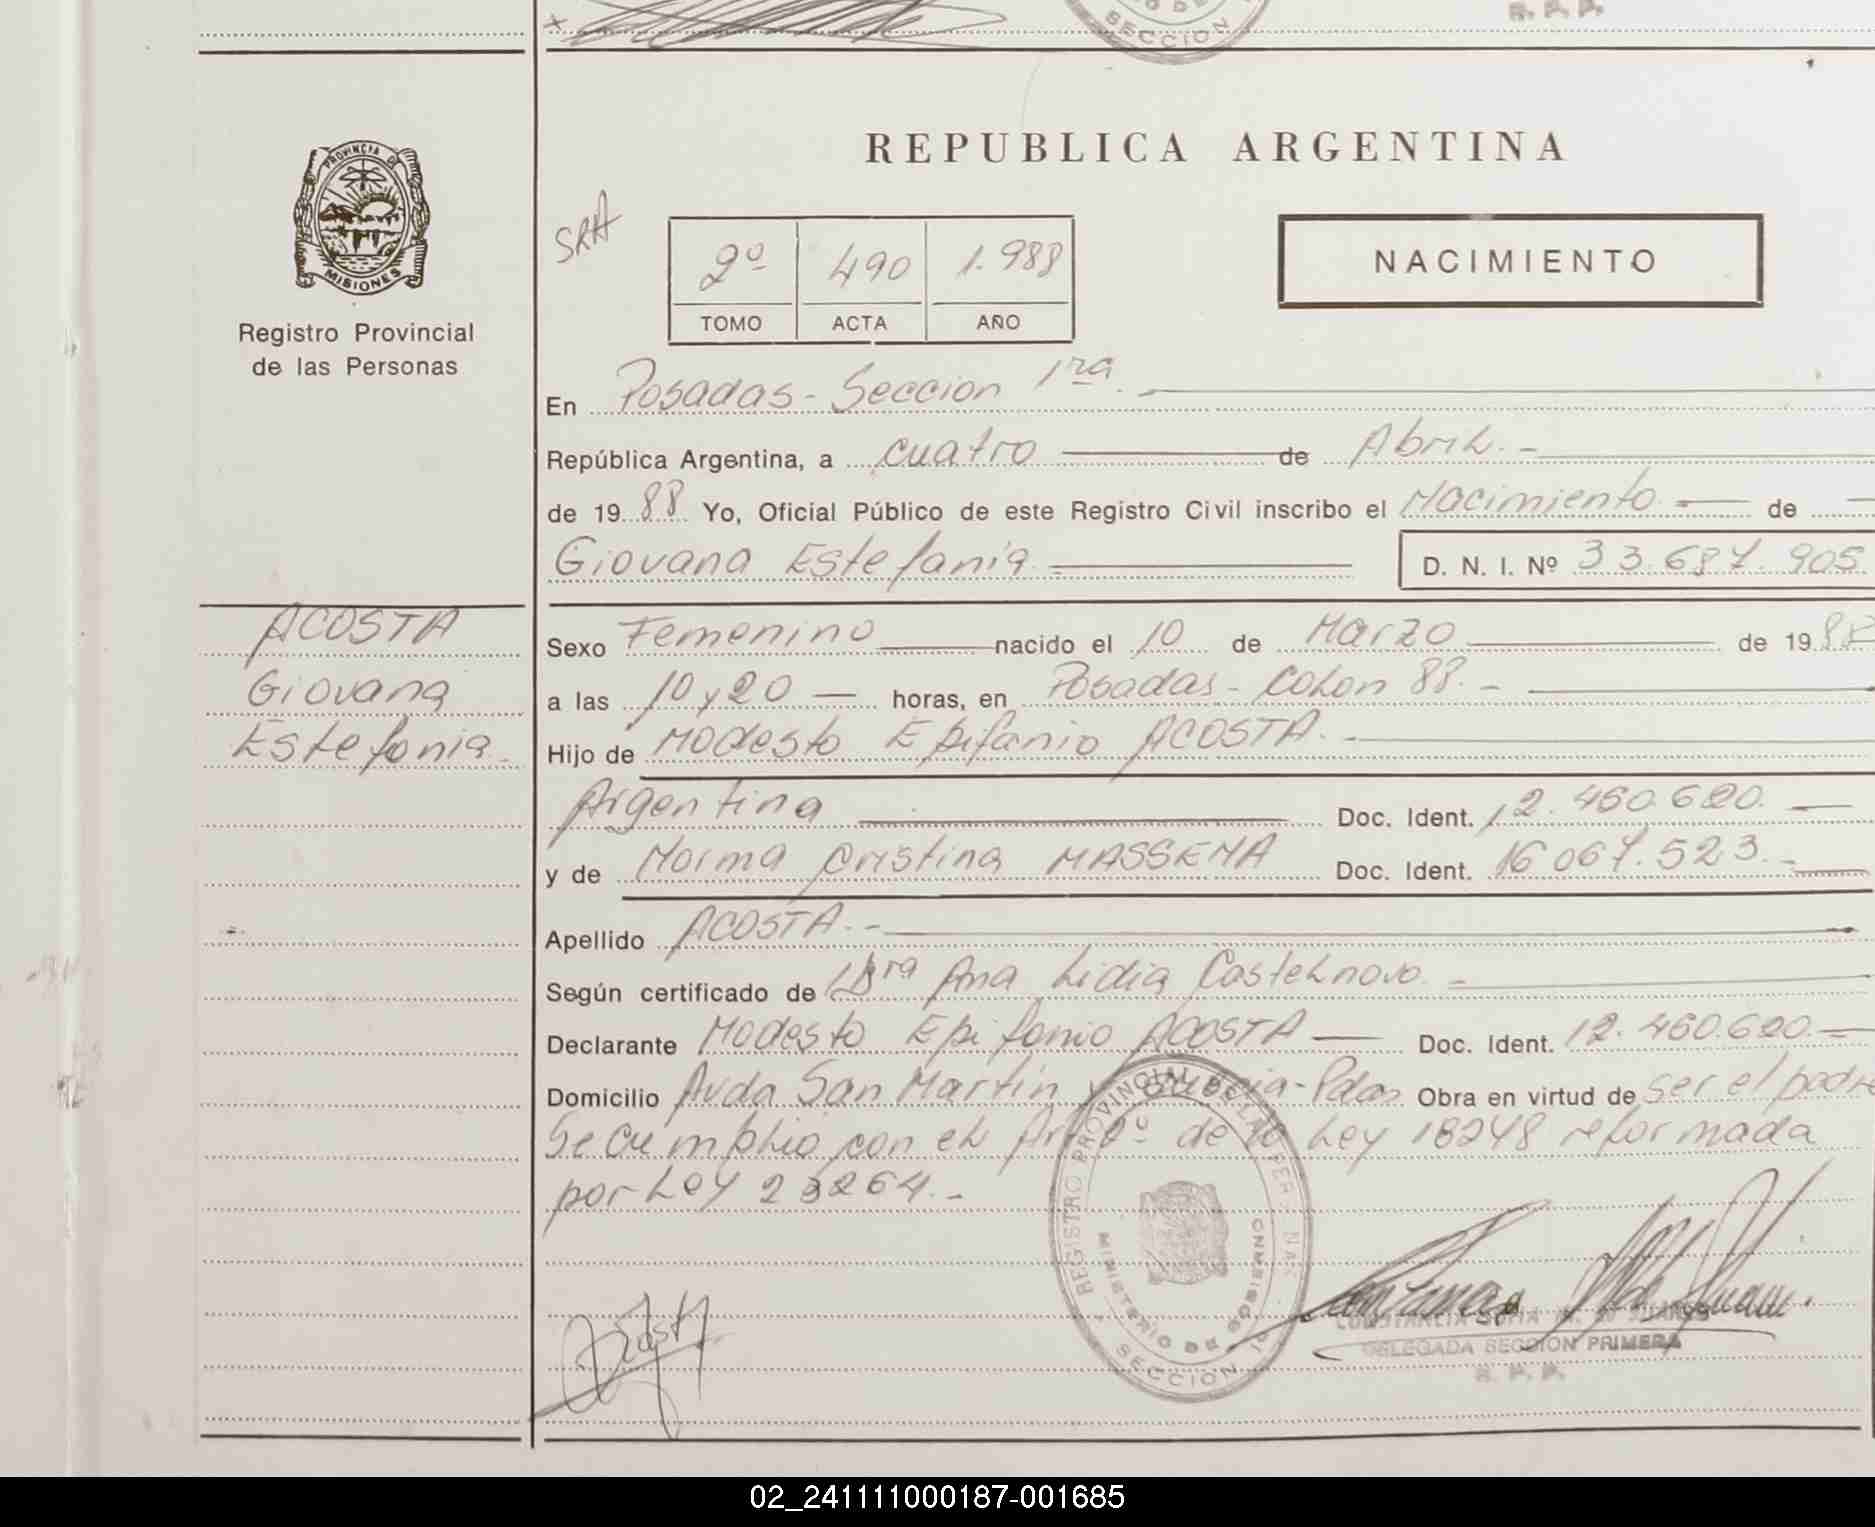 SECCION
R. P. P.
PROVINCIA DE
MISIONES
Registro Provincial
de las Personas
REPUBLICA ARGENTINA
SRA
2º 490 1.988
TOMO ACTA AÑO
NACIMIENTO
En Posadas - Seccion 1ra. -
República Argentina, a cuatro de Abril. -
de 1988 Yo, Oficial Público de este Registro Civil inscribo el Nacimiento de
Giovana Estefanía D. N. I. Nº 33.687.905
ACOSTA
Giovana
Estefania.
Sexo Femenino nacido el 10 de Marzo de 1988
a las 10 y 20 horas, en Posadas - Colon 88. -
Hijo de Modesto Epifanio ACOSTA. -
Argentina Doc. Ident. 12.460.620.
y de Norma Cristina MASSENA Doc. Ident. 16 067.523. -
Apellido ACOSTA. -
Según certificado de Dra Ana Lidia Castelnovo.
Declarante Modesto Epifanio ACOSTA Doc. Ident. 12.460.620.
Domicilio Avda San Martín y - Pdas Obra en virtud de ser el padre
Se cumplio con el Art de la Ley 18248 reformada
por Ley 23264. -
REGISTRO PROVINCIAL DE LAS PERSONAS
MINISTERIO DE GOBIERNO
SECCION 1a
CONSTANCIA SOFIA DE SUAREZ
DELEGADA SECCION PRIMERA
R. P. P.
02_241111000187-001685